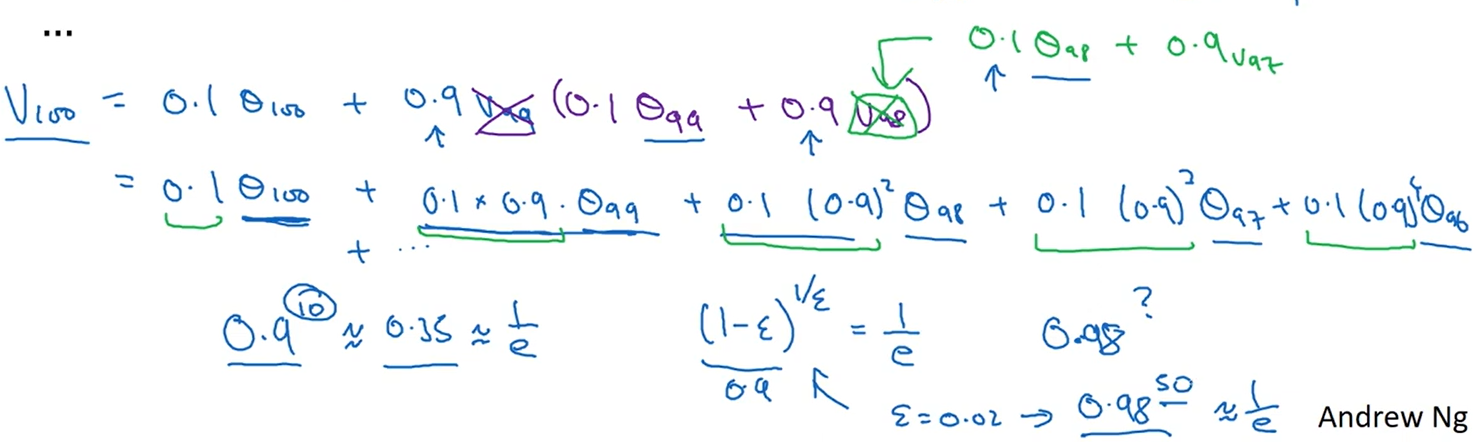 ...
0.1 θ98 + 0.9 V97
V100 = 0.1 θ100 + 0.9 V99 (0.1 θ99 + 0.9 V98)
= 0.1 θ100 + 0.1 × 0.9 · θ99 + 0.1 (0.9)² θ98 + 0.1 (0.9)³ θ97 + 0.1 (0.9)⁴ θ96
+ ...
0.9¹⁰ ≈ 0.35 ≈ 1/e (1-ε)^(1/ε) = 1/e 0.98^?
0.9
ε = 0.02 → 0.98⁵⁰ ≈ 1/e
Andrew Ng